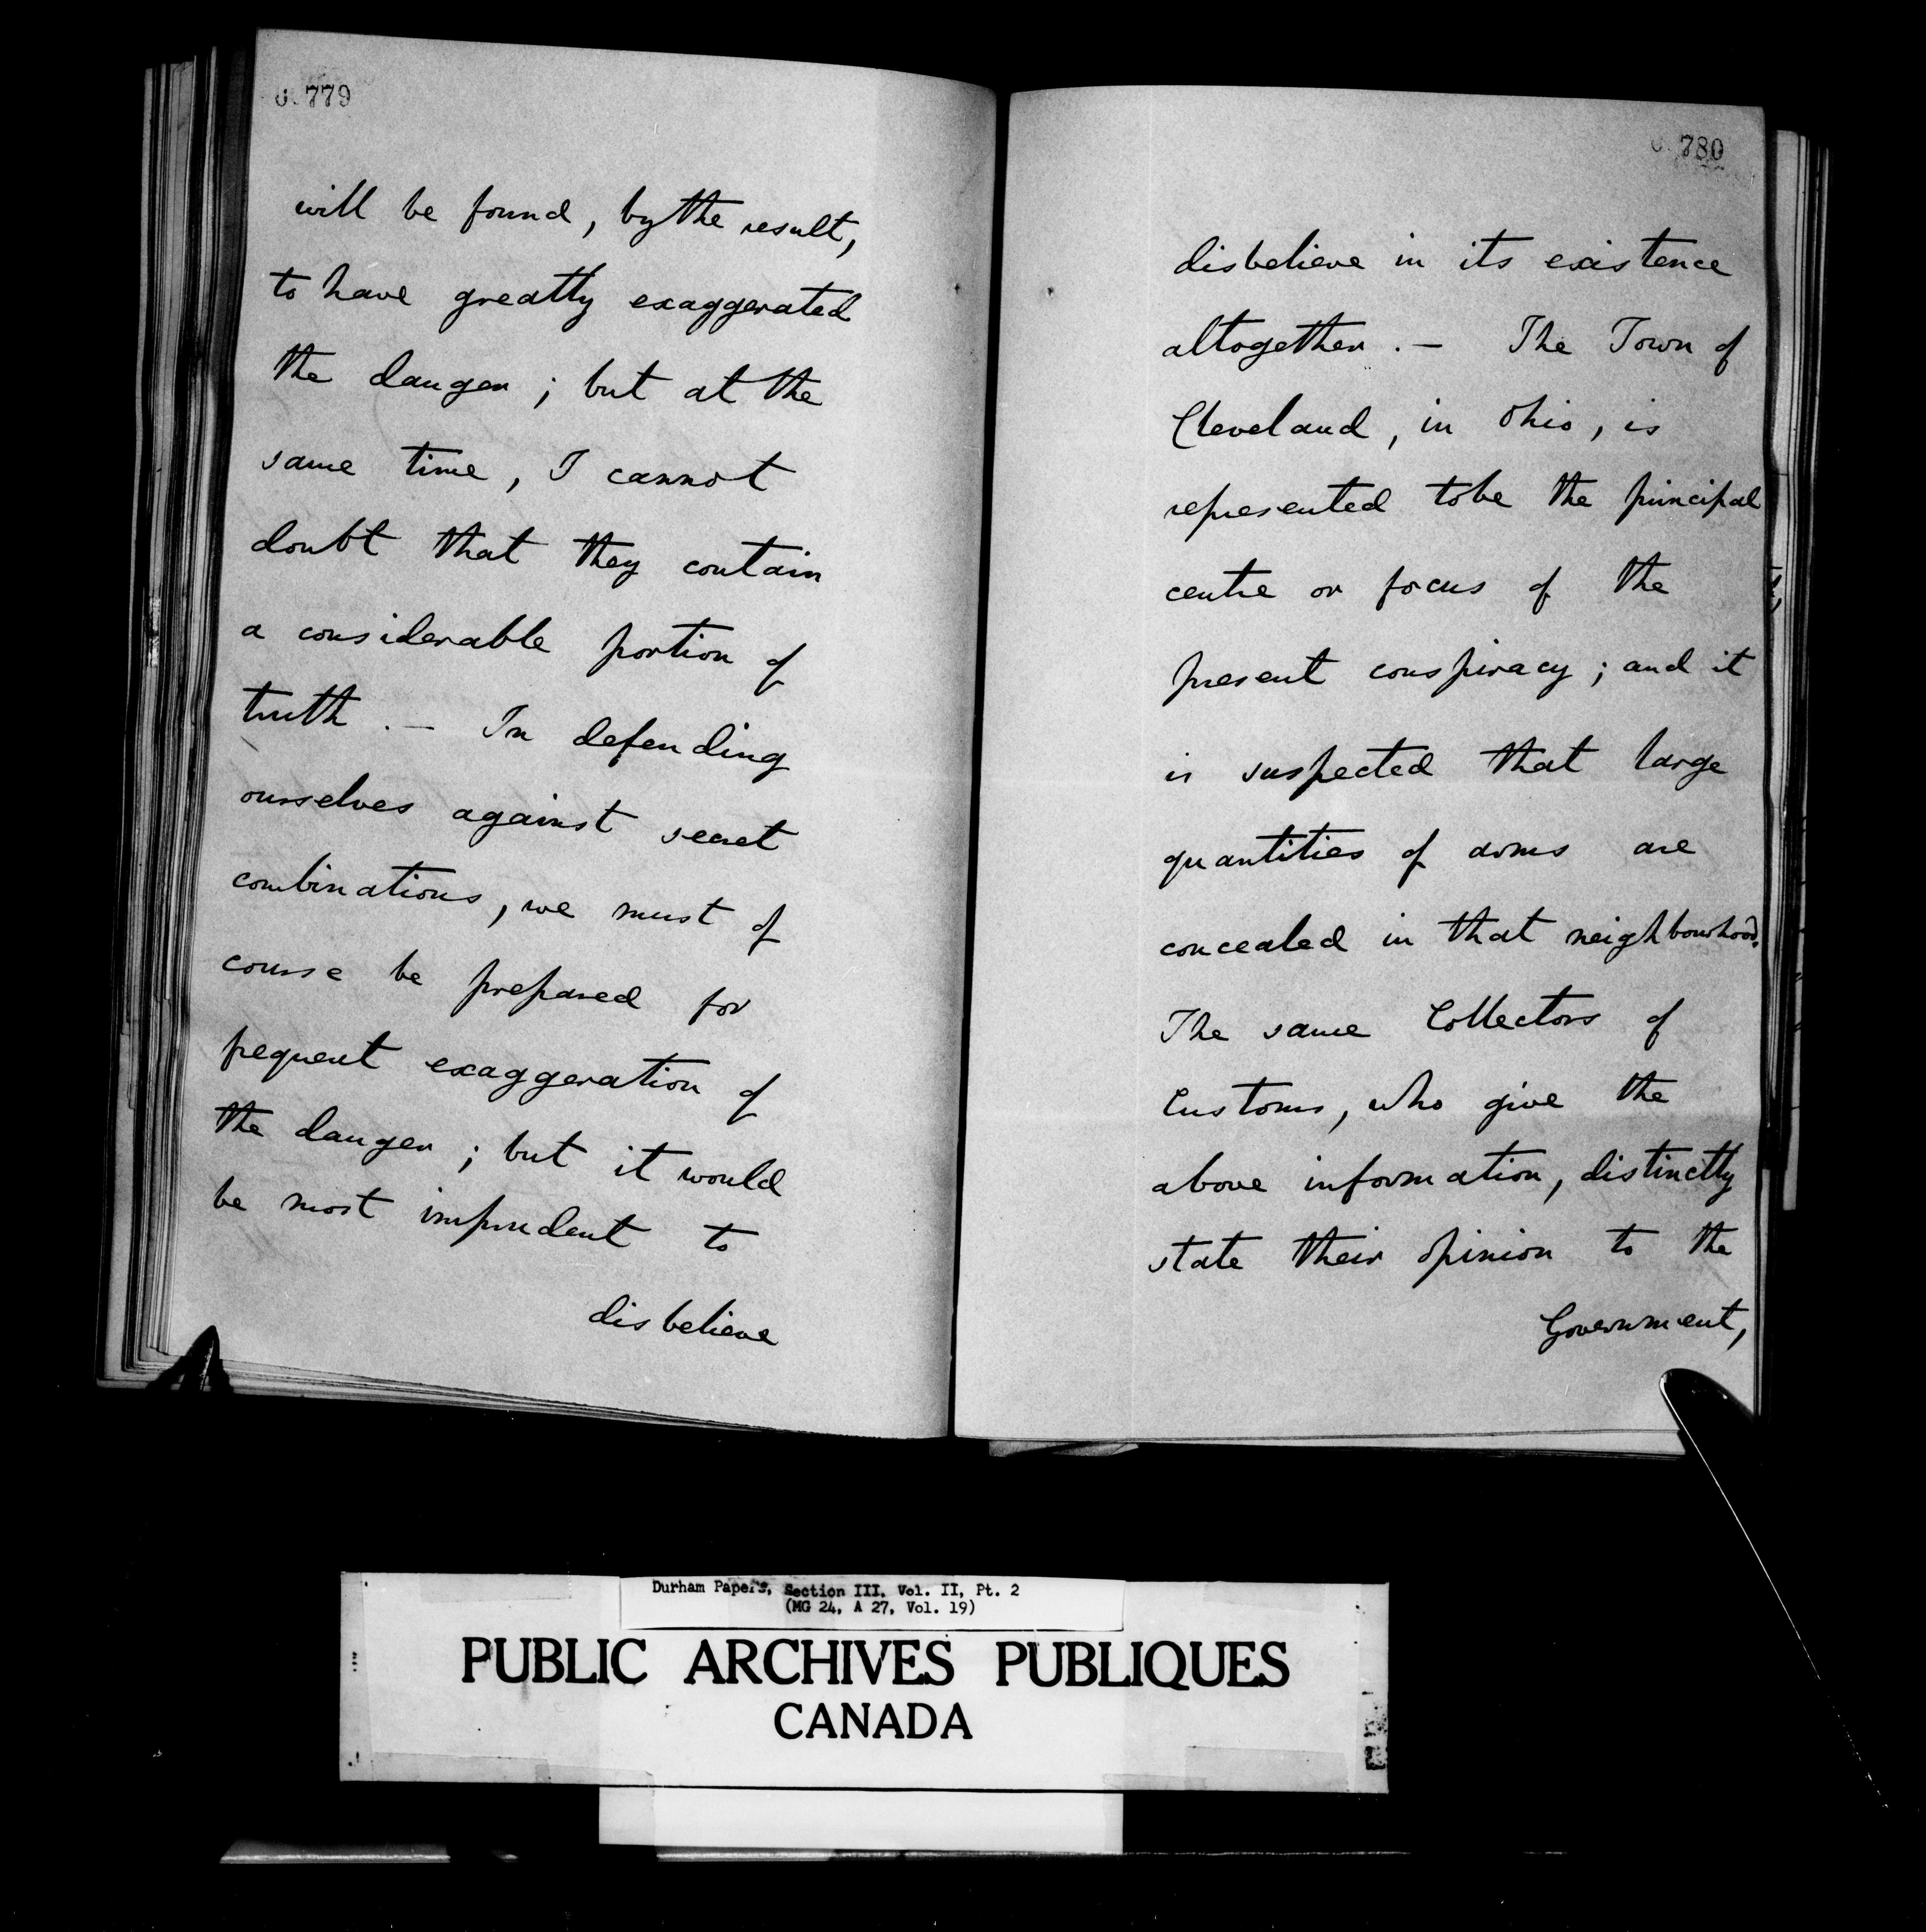 779
will be found, by the result,
to have greatly exaggerated
the danger; but at the
same time, I cannot
doubt that they contain
a considerable portion of
truth. — In defending
ourselves against secret
combinations, we must of
course be prepared for
frequent exaggeration of
the danger; but it would
be most imprudent to
disbelieve
780
disbelieve in its existence
altogether. — The Town of
Cleveland, in Ohio, is
represented to be the principal
centre or focus of the
present conspiracy; and it
is suspected that large
quantities of arms are
concealed in that neighbourhood.
The same Collectors of
Customs, who give the
above information, distinctly
state their opinion to the
Government,
Durham Papers, Section III. Vol. II, Pt. 2
(MG 24, A 27, Vol. 19)
PUBLIC ARCHIVES PUBLIQUES
CANADA